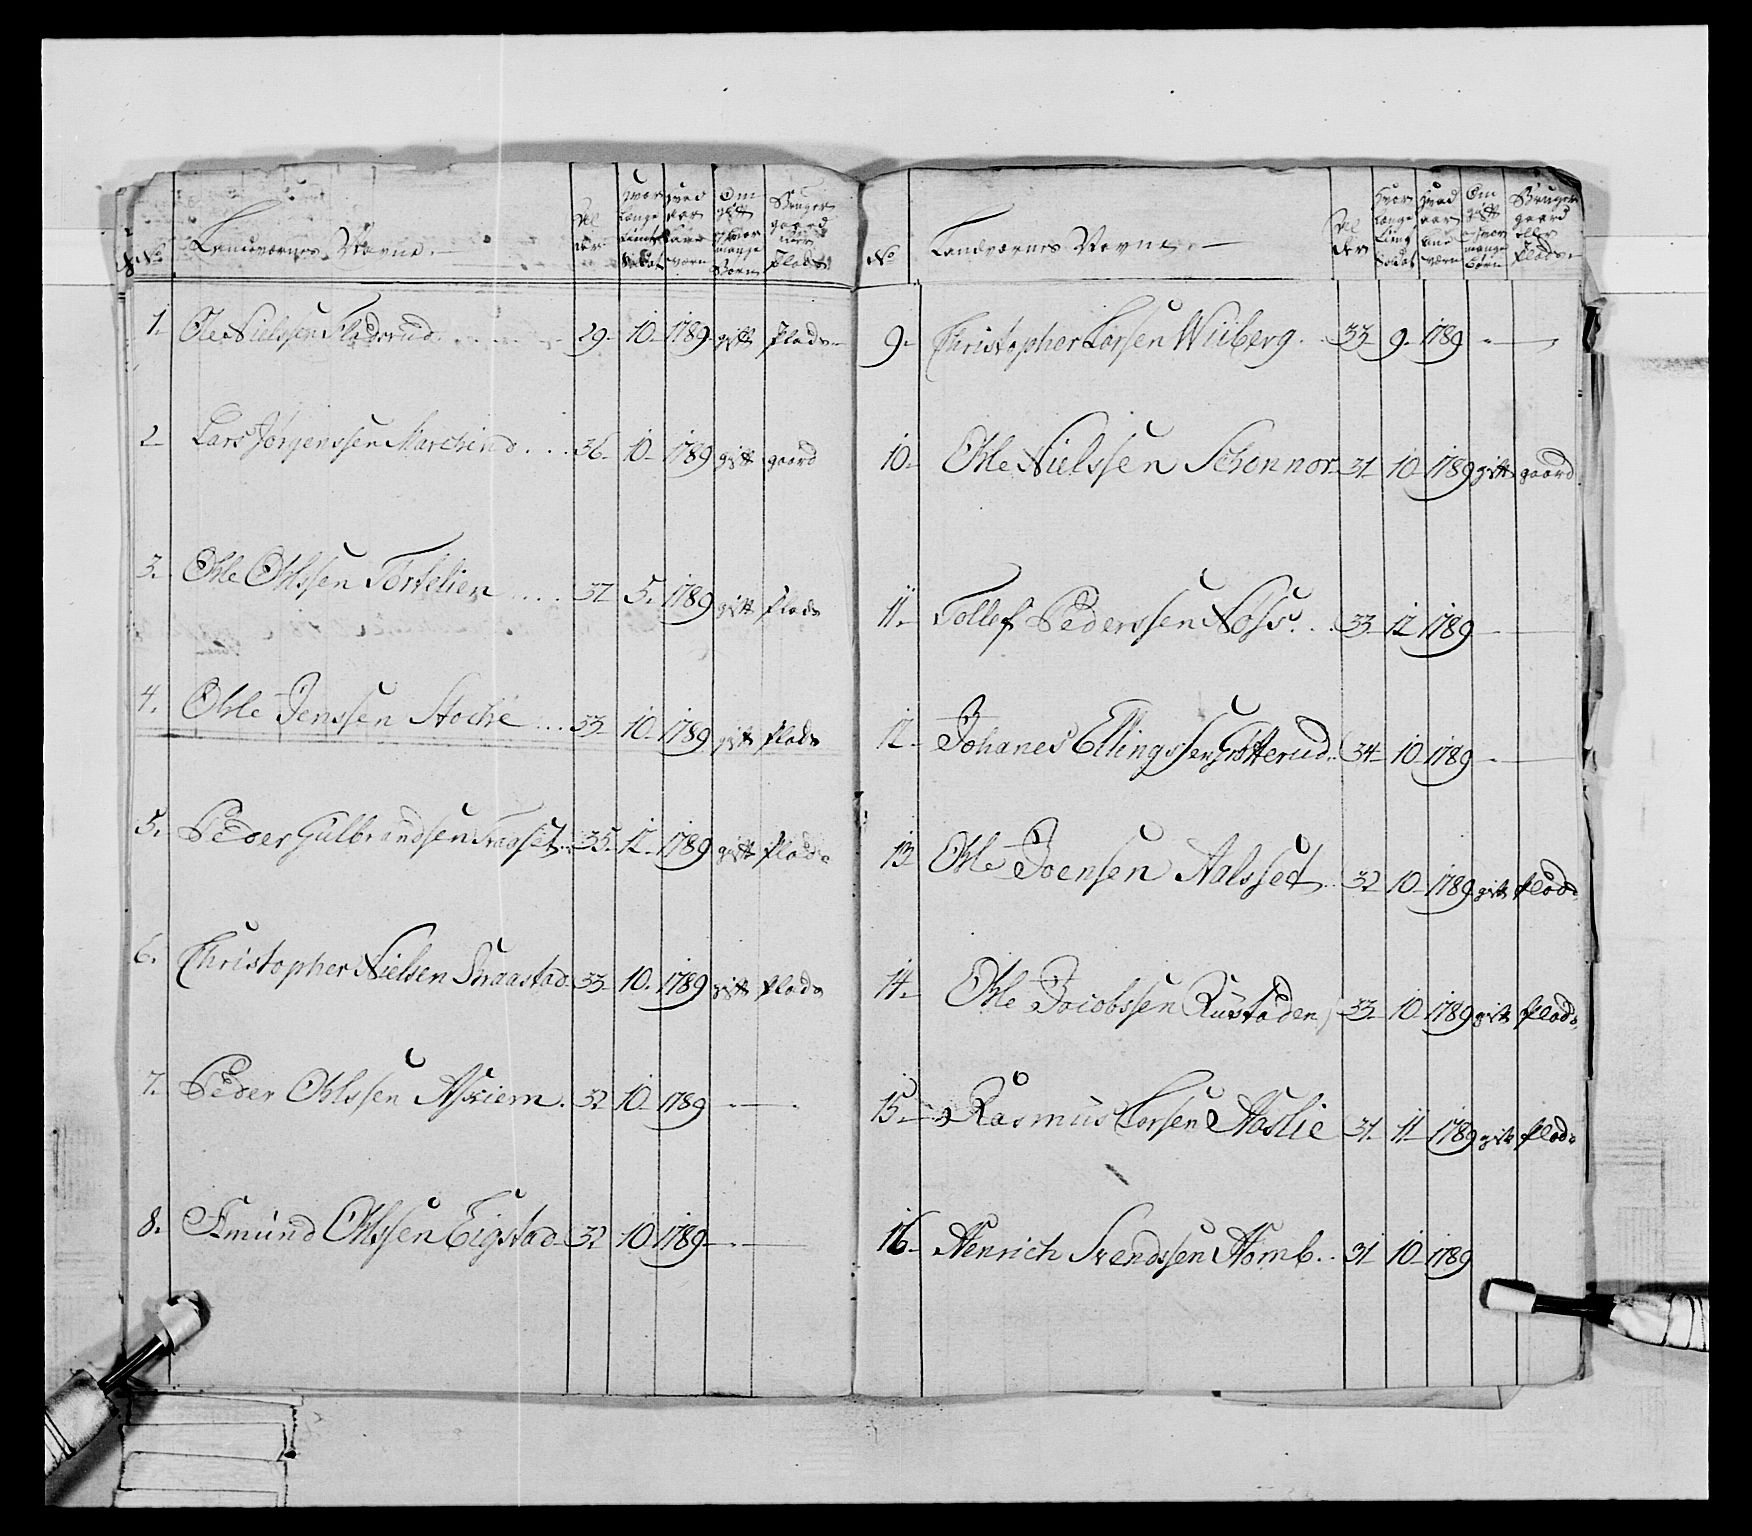 No Landværnes Navne. Alder Hvor længe tient Soldat Hvad aar Landværn Om gift og hvor mange Børn Bruger gaard eller Plads
1. Ole Nielssen Fladsrud 29 10 1789 gift Plads
2 Lars Jørgenssen Marchind 36 10 1789 gift gaard
3. Ohle Ohlssen Tortelien 37 5 1789 gift Plads
4. Ohle Jenssen Stocke 33 10 1789 gift Plads
5. Peder Gulbrandsen Traaset 35 12 1789 gift Plads
6. Christopher Nielsen Skraastad 33 10 1789 gift Plads
7. Peder Ohlssen Aschiem 32 10 1789
8. Amund Ohlssen Eigstad 32 10 1789
No Landværnes Navne. Alder Hvor længe tient Soldat Hvad aar Landværn Om gift og hvor mange Børn Bruger gaard eller Plads
9 Christopher Larsen Wiiberg 33 9 1789
10 Ohle Nielssen Schonnor 31 10 1789 gift gaard
11. Tollef Pederssen 33 12 1789
12 Johanes Ellingssen Grøtterud 34 10 1789
13 Ohle Joensen Aalsset 32 10 1789 gift Plads
14 Ohle Jacobssen Rustaden 33 10 1789 gift Plads
15 Rasmus Larsen Haslie 31 11 1789 gift Plads
16 Henrich Svendssen Homb. 31 10 1789